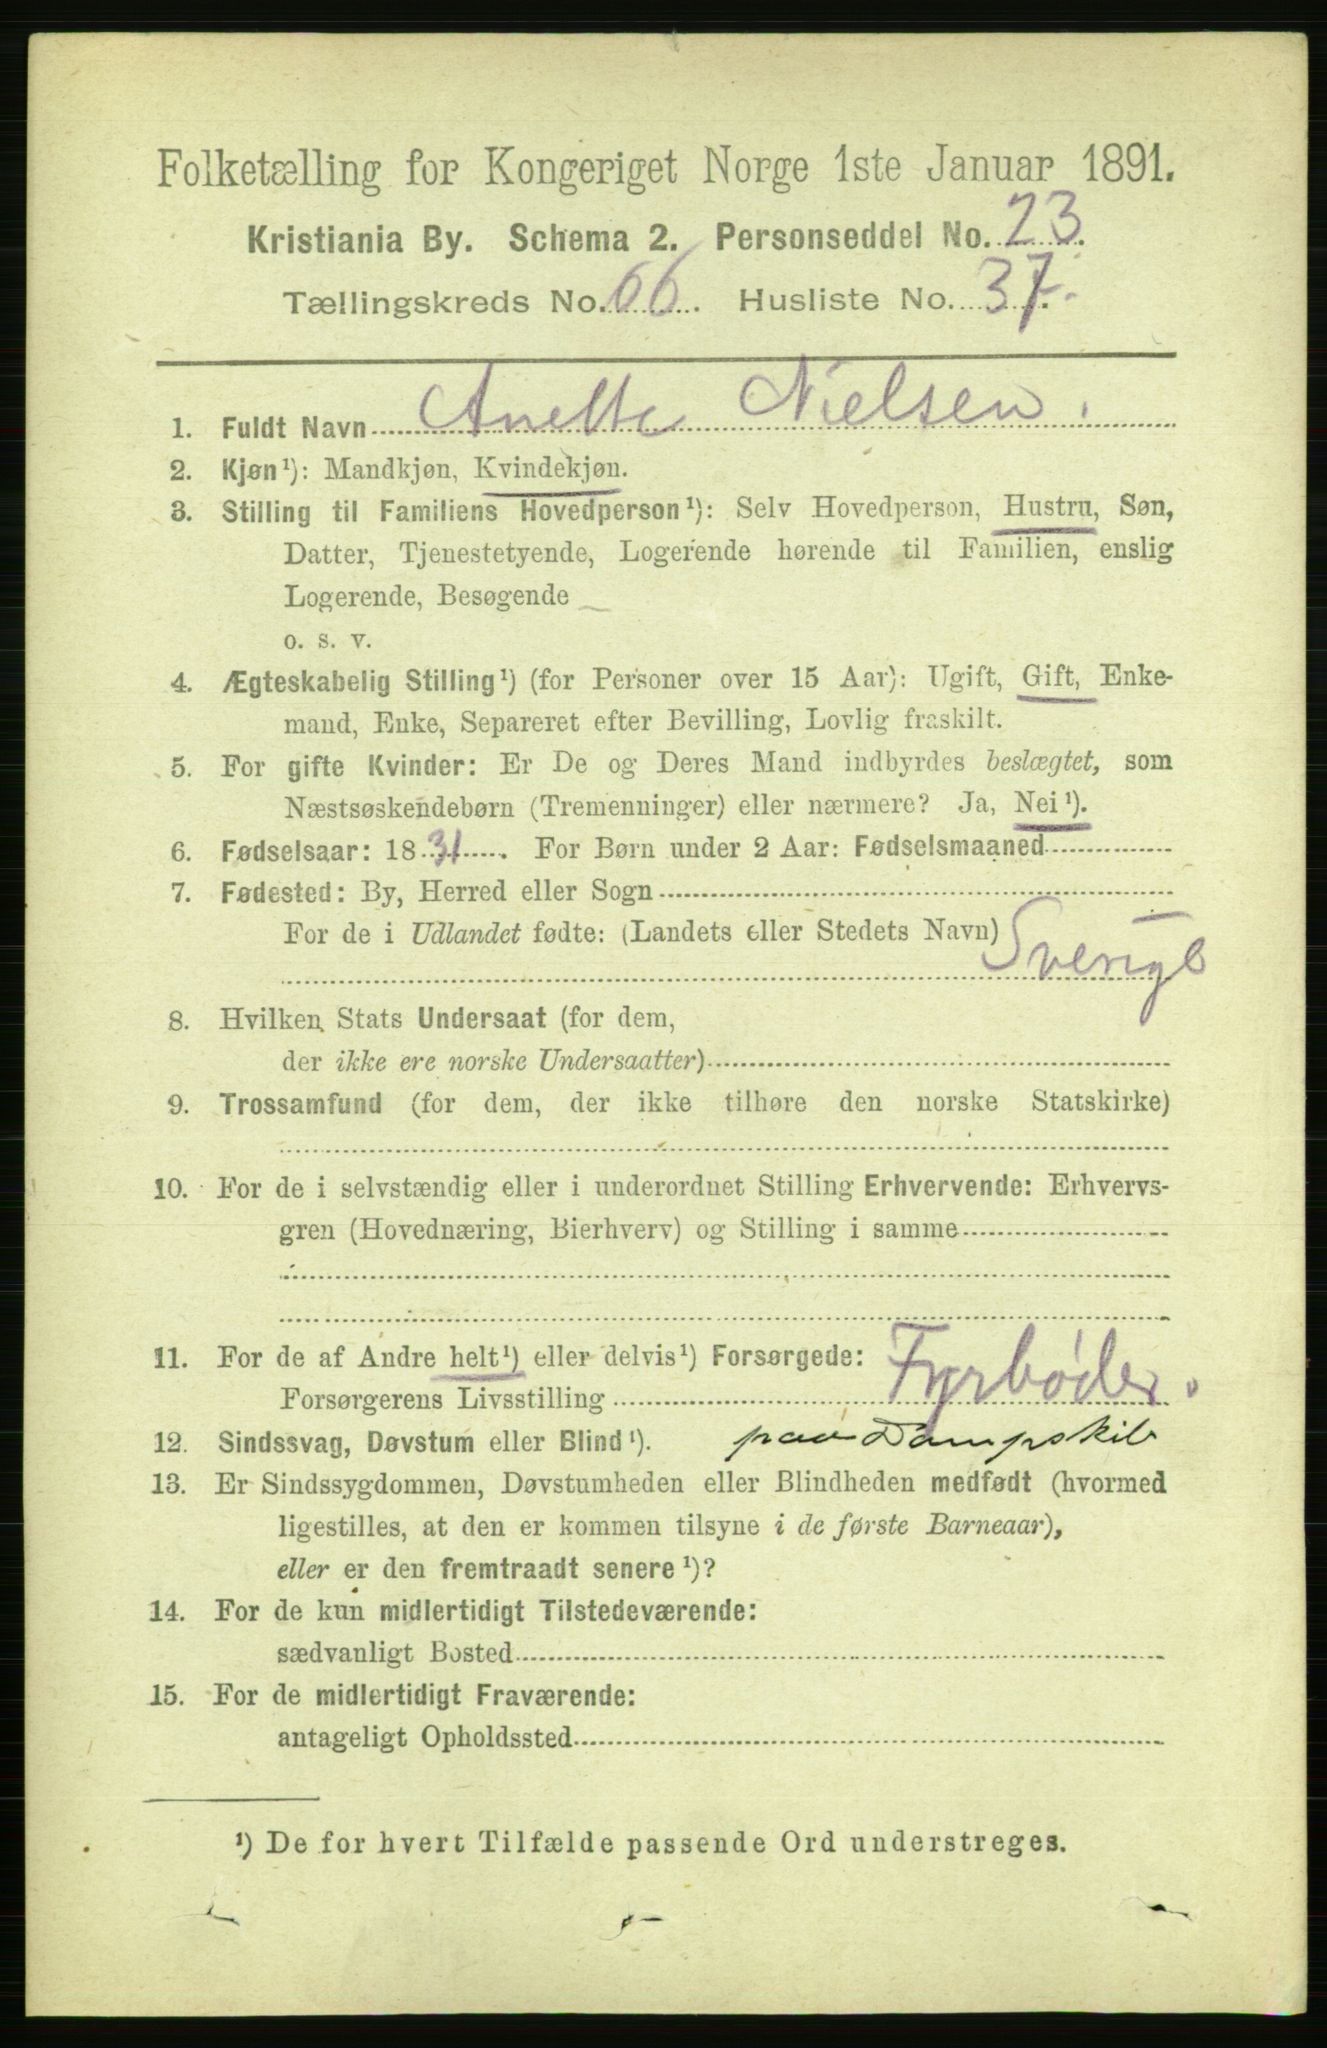 Folketælling for Kongeriget Norge 1ste Januar 1891.
Kristiania By. Schema 2. Personseddel No. 23.
Tællingskreds No. 66. Husliste No. 37.
1. Fuldt Navn Anette Nielsen.
2. Kjøn¹): Mandkjøn, Kvindekjøn.
3. Stilling til Familiens Hovedperson¹): Selv Hovedperson, Hustru, Søn,
Datter, Tjenestetyende, Logerende hørende til Familien, enslig
Logerende, Besøgende
o. s. v.
4. Ægteskabelig Stilling¹) (for Personer over 15 Aar): Ugift, Gift, Enke-
mand, Enke, Separeret efter Bevilling, Lovlig fraskilt.
5. For gifte Kvinder: Er De og Deres Mand indbyrdes beslægtet, som
Næstsøskendebørn (Tremenninger) eller nærmere? Ja, Nei¹).
6. Fødselsaar: 1831. For Børn under 2 Aar: Fødselsmaaned
7. Fødested: By, Herred eller Sogn
For de i Udlandet fødte: (Landets eller Stedets Navn)
Sverige
8. Hvilken Stats Undersaat (for dem,
der ikke ere norske Undersaatter)
9. Trossamfund (for dem, der ikke tilhøre den norske Statskirke)
10. For de i selvstændig eller i underordnet Stilling Erhvervende: Erhvervs-
gren (Hovednæring, Bierhverv) og Stilling i samme
11. For de af Andre helt¹) eller delvis¹) Forsørgede:
Forsørgerens Livsstilling Fyrbøder.
12. Sindssvag, Døvstum eller Blind¹). paa Dampskib
13. Er Sindssygdommen, Døvstumheden eller Blindheden medfødt (hvormed
ligestilles, at den er kommen tilsyne i de første Barneaar),
eller er den fremtraadt senere¹)?
14. For de kun midlertidigt Tilstedeværende:
sædvanligt Bosted
15. For de midlertidigt Fraværende:
antageligt Opholdssted
¹) De for hvert Tilfælde passende Ord understreges.